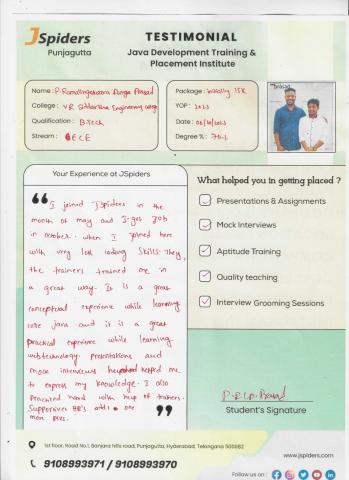 JSpiders
Punjagutta
TESTIMONIAL
Java Development Training &
Placement Institute
Name : P. Ramalingeswara Durga Prasad
College : VR Siddhartha Engineering college
Qualification : B.Tech
Stream : ECE
Package : Initially 15K
YOP : 2023
Date :
Degree % :
Your Experience at JSpiders
I joined JSpiders in the
month of may and I got Job
in october. when I joined here
with very less coding skills. They,
the trainers trained me in
a great way. It is a great
conceptual experience while learning
core java and it is a great
practical experience while learning
webtechnology. presentations and
mock interviews helped me
to express my knowledge. I also
practiced hard with help of trainers.
Supportive HR's adds one
more plus.
What helped you in getting placed ?
Presentations & Assignments
Mock Interviews
Aptitude Training
Quality teaching
Interview Grooming Sessions
Student's Signature
1st floor, Road No.1, Banjara hills road, Punjagutta, Hyderabad, Telangana 500082
9108993971 / 9108993970
www.jspiders.com
Follow us on :